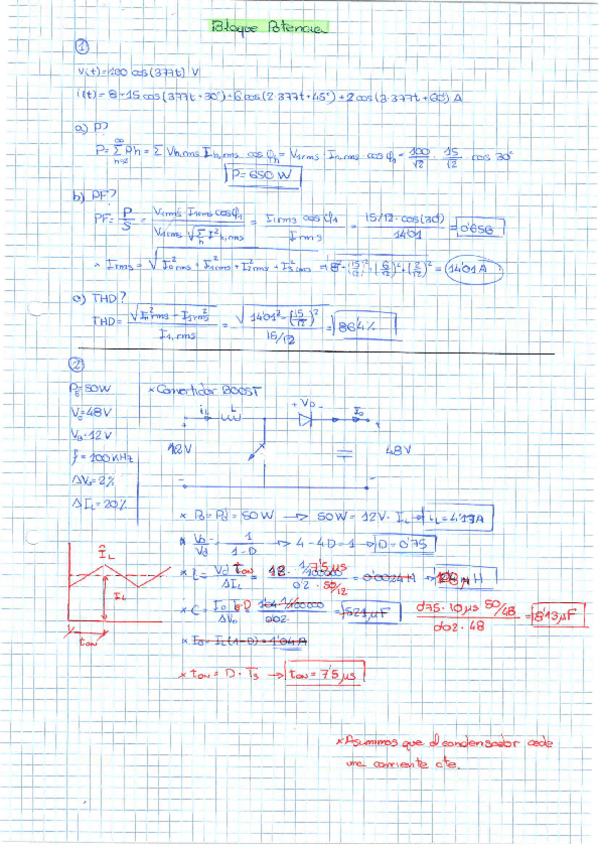 Bloque Potencia
①
v(t)=100 cos(377t) V
i(t) = 8+15 cos(377t+30°)+6 cos(2·377t+45°)+2 cos(3·377t+60°) A
a) P?
P = ∑ Ph = ∑ Vh,rms Ih,rms cos φh = V1rms I1,rms cos φ1 = 100/√2 · 15/√2 · cos 30°
P = 650 W
b) PF?
PF = P/S = V1rms I1rms cosφ1 / V1rms √∑ I²h,rms = I1rms cos φ1 / Irms = 15/√2 · cos(30) / 14'01 = 0'656
* Irms = √I²0rms + I²1rms + I²2rms + I²3rms = √8² + (15/√2)² + (6/√2)² + (2/√2)² = 14'01 A
c) THD?
THD = √I²rms − I1rms² / I1,rms = √14'01² − (15/√2)² / 15/√2 = 86'4%
②
P=50W * Convertidor BOOST
V=48V
V=12V
f=100KHz
ΔVo=2%
ΔIL=20%
iL L + VD - Io
12V 48V
* Po = Pd = 50W → 50W = 12V · IL → iL = 4'17A
* Vo/Vd = 1/1-D → 4 - 4D = 1 → D = 0'75
* L = Vd ton / ΔIL = 12 · 7'5 μs / 0'2 · 50/12 = 0'0024H
* C = Io D / ΔVo = 521 μF 0'75 · 10 μs 50/48 / 0'02 · 48 = 8'13 μF
* Io = IL (1-D) = 1'04 A
* ton = D · Ts → ton = 7'5 μs
ÎL
IL
ton
* Asumimos que el condensador cede
una corriente cte.